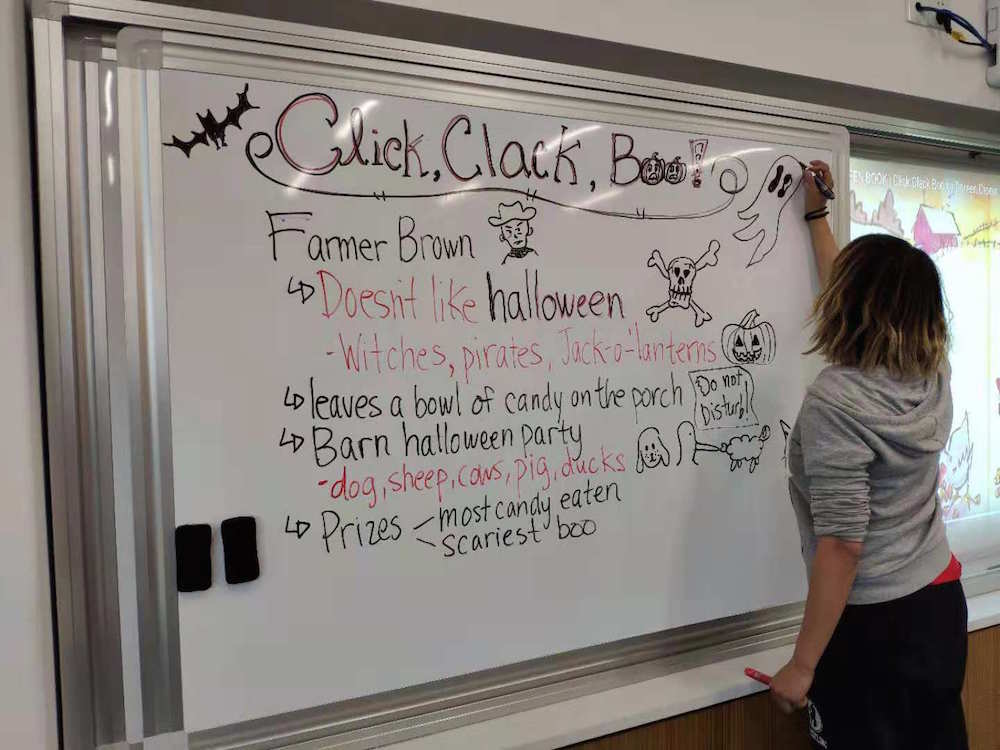 Click, Clack, Boo!
Farmer Brown
↳ Doesn't like halloween
-Witches, pirates, Jack-o'-lanterns
↳ leaves a bowl of candy on the porch
Do not
Disturb!
↳ Barn halloween party
-dog, sheep, cows, pig, ducks
↳ Prizes < most candy eaten
scariest boo
BOOK | Click Clack Boo by Doreen